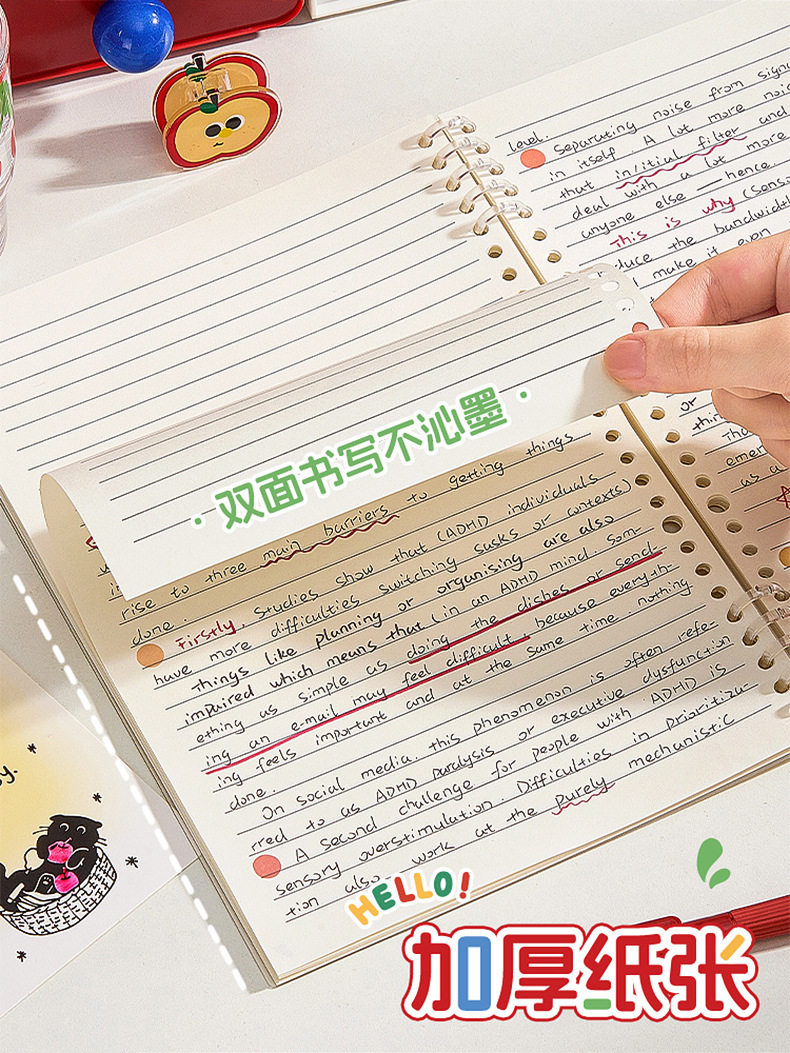 level.
Separating noise from signa
in itself. A lot more noi
that in/itial filter and
deal with a lot more
anyone else — hence.
This is why (sens
duce the bandwidth
make it even
or
thin
Tha
emer
as a
·双面书写不沁墨·
rise to three main barriers to getting things
done.
Firstly, studies show that (ADHD individuals
have more difficulties switching tasks or contexts)
things like planning or organising are also
impaired which means that (in an ADHD mind. som-
ething as simple as doing the dishes or send-
ing an e-mail may feel difficult because everyth-
ing feels important and at the same time nothing
done.
On social media. this phenomenon is often refe-
rred to as ADHD paralysis or executive dysfunction
A second challenge for people with ADHD is
sensory overstimulation. Difficulties in prioritiza-
tion also work at the purely mechanistic
HELLO!
加厚纸张